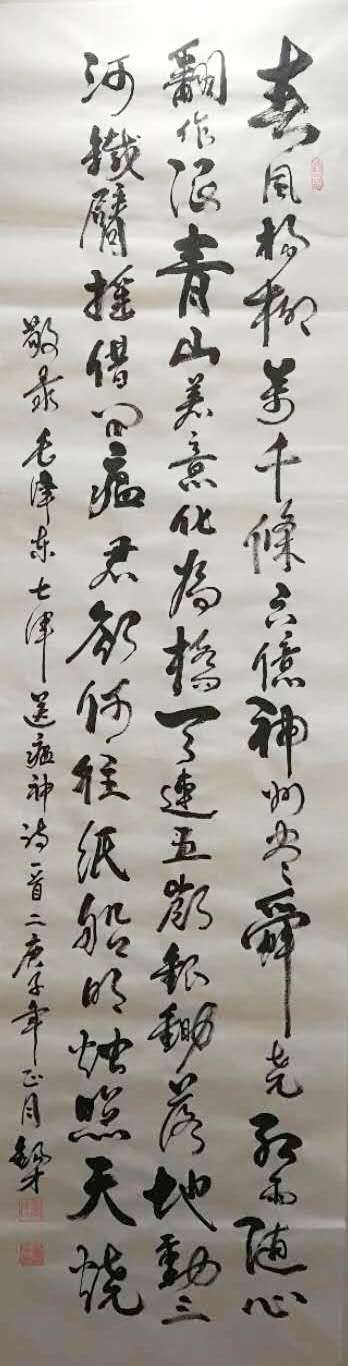 春風楊柳萬千條六億神州尽舜尧红雨随心
翻作浪青山着意化為橋天連五嶺銀鋤落地動三
河鐵臂搖借问瘟君欲何往纸船明烛照天烧
敬录毛泽东七律送瘟神诗一首二庚子年正月